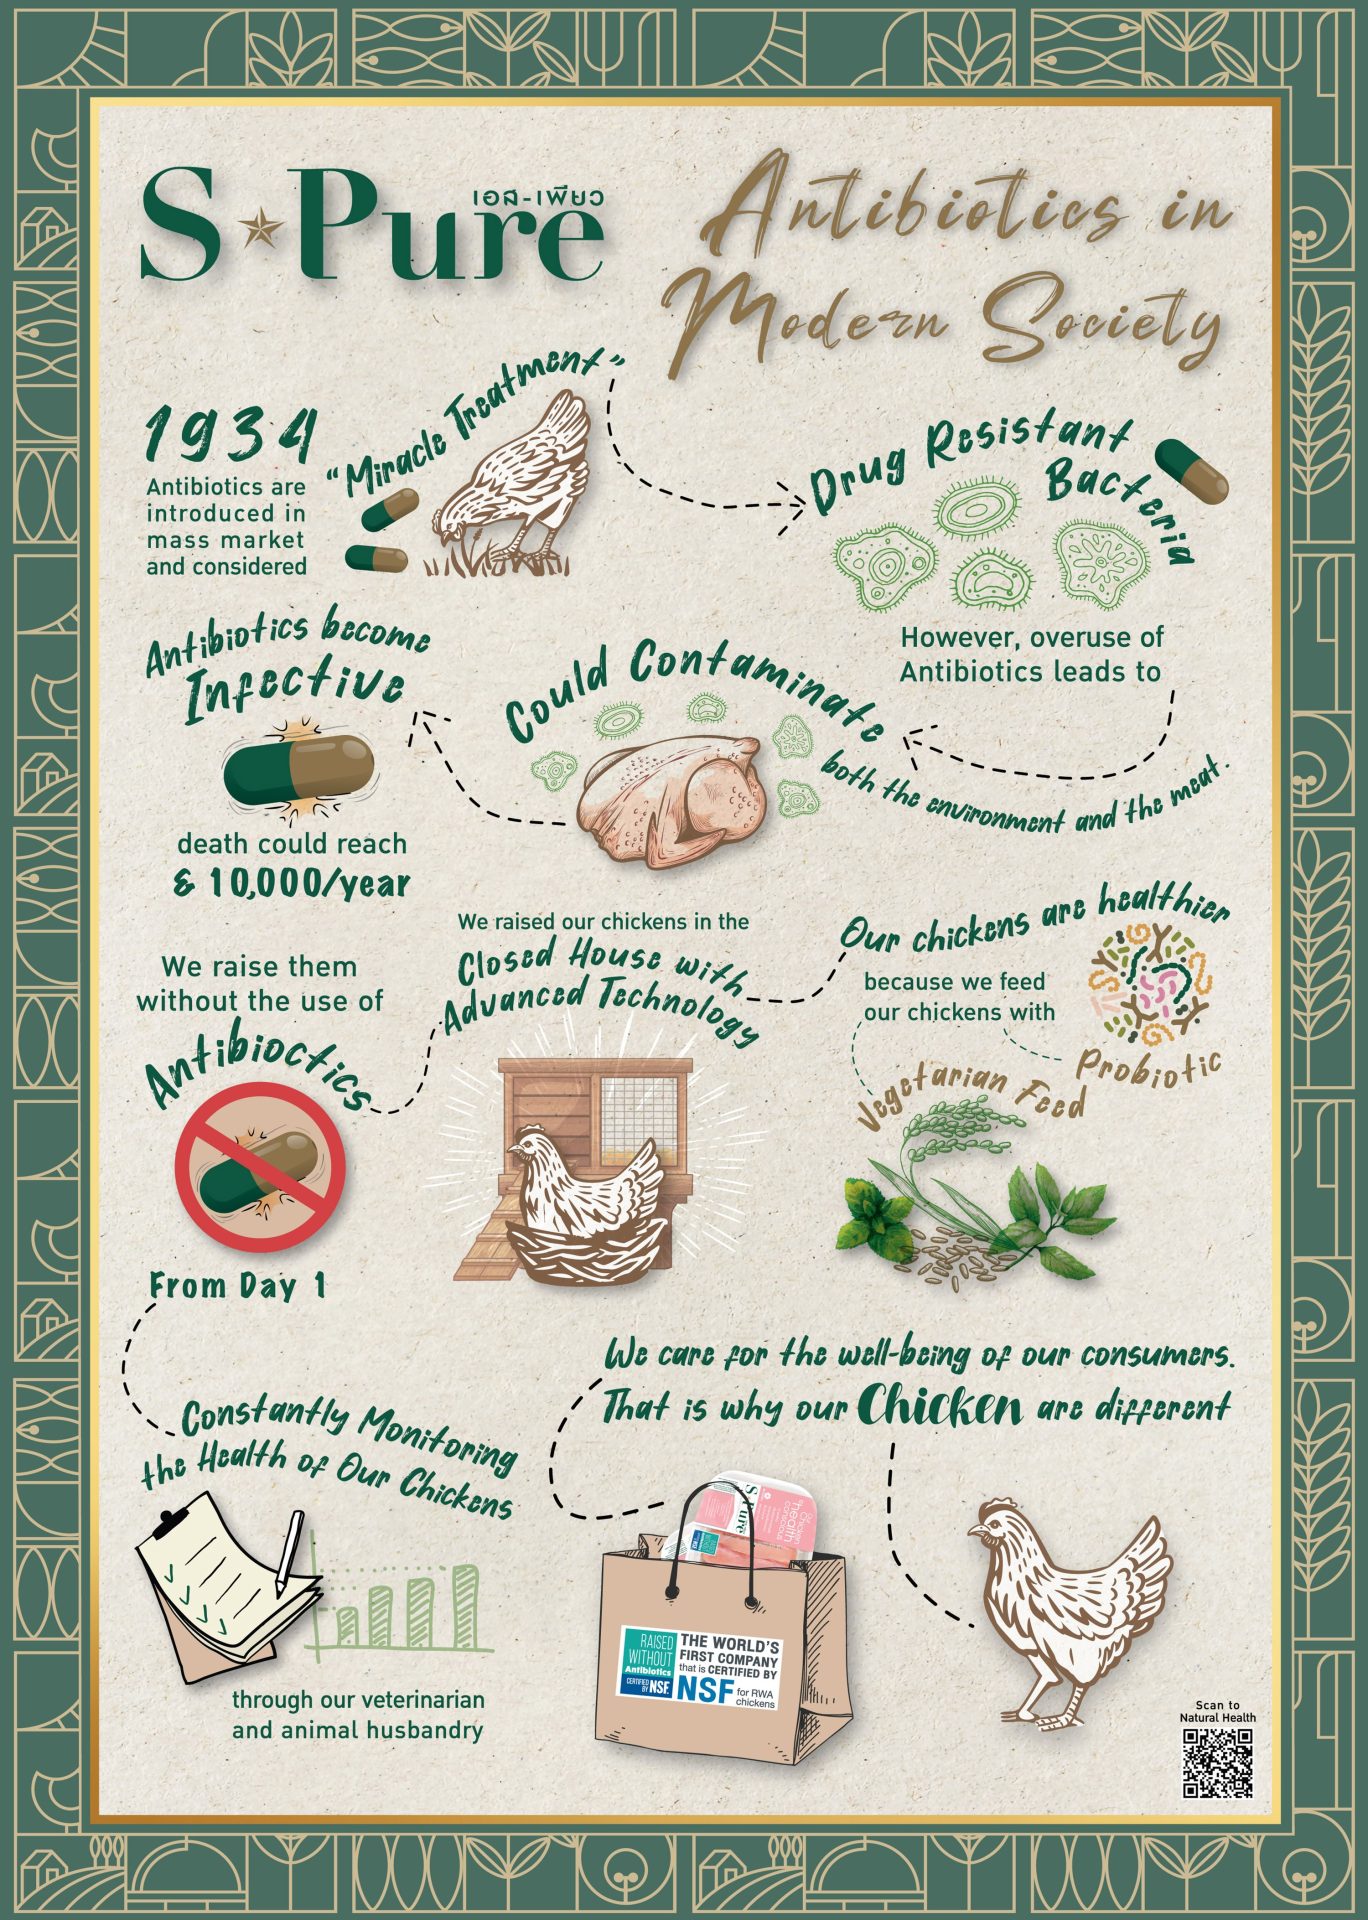 S Pure
เอส-เพียว
Antibiotics in
Modern Society
1934
Antibiotics are
introduced in
mass market
and considered
"Miracle Treatment"
Drug Resistant
Bacteria
However, overuse of
Antibiotics leads to
Could Contaminate
both the environment and the meat.
Antibiotics become
Infective
death could reach
& 10,000/year
We raised our chickens in the
Closed House with
Advanced Technology
Our chickens are healthier
because we feed
our chickens with
Probiotic
Vegetarian Feed
We raise them
without the use of
Antibioctics
From Day 1
Constantly Monitoring
the Health of Our Chickens
through our veterinarian
and animal husbandry
We care for the well-being of our consumers.
That is why our Chicken are different
S Pure
health
conscious
RAISED
WITHOUT
Antibiotics
CERTIFIED
BY NSF.
THE WORLD'S
FIRST COMPANY
that is CERTIFIED BY
NSF for RWA
chickens
Scan to
Natural Health